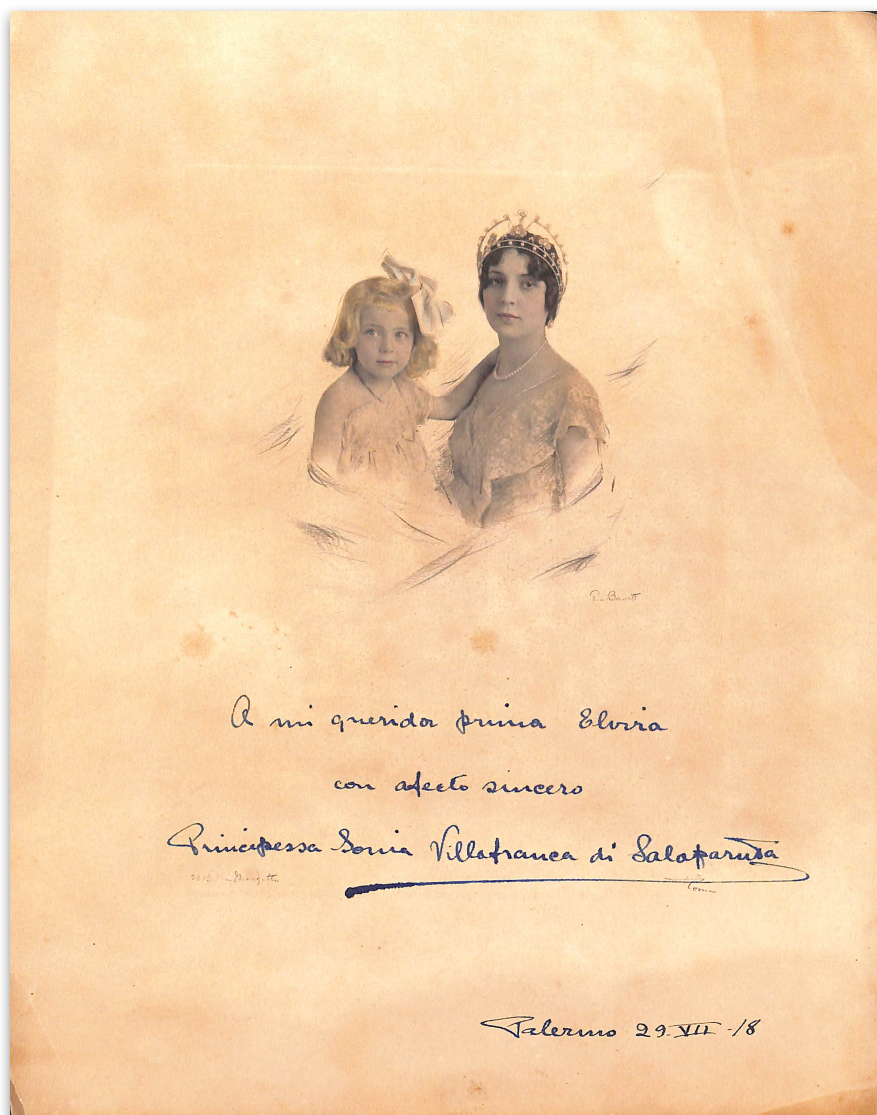 A mi querida prima Elvira
con afecto sincero
Principessa Sonia Villafranca di Salaparuta
Palermo 29. VII - 18